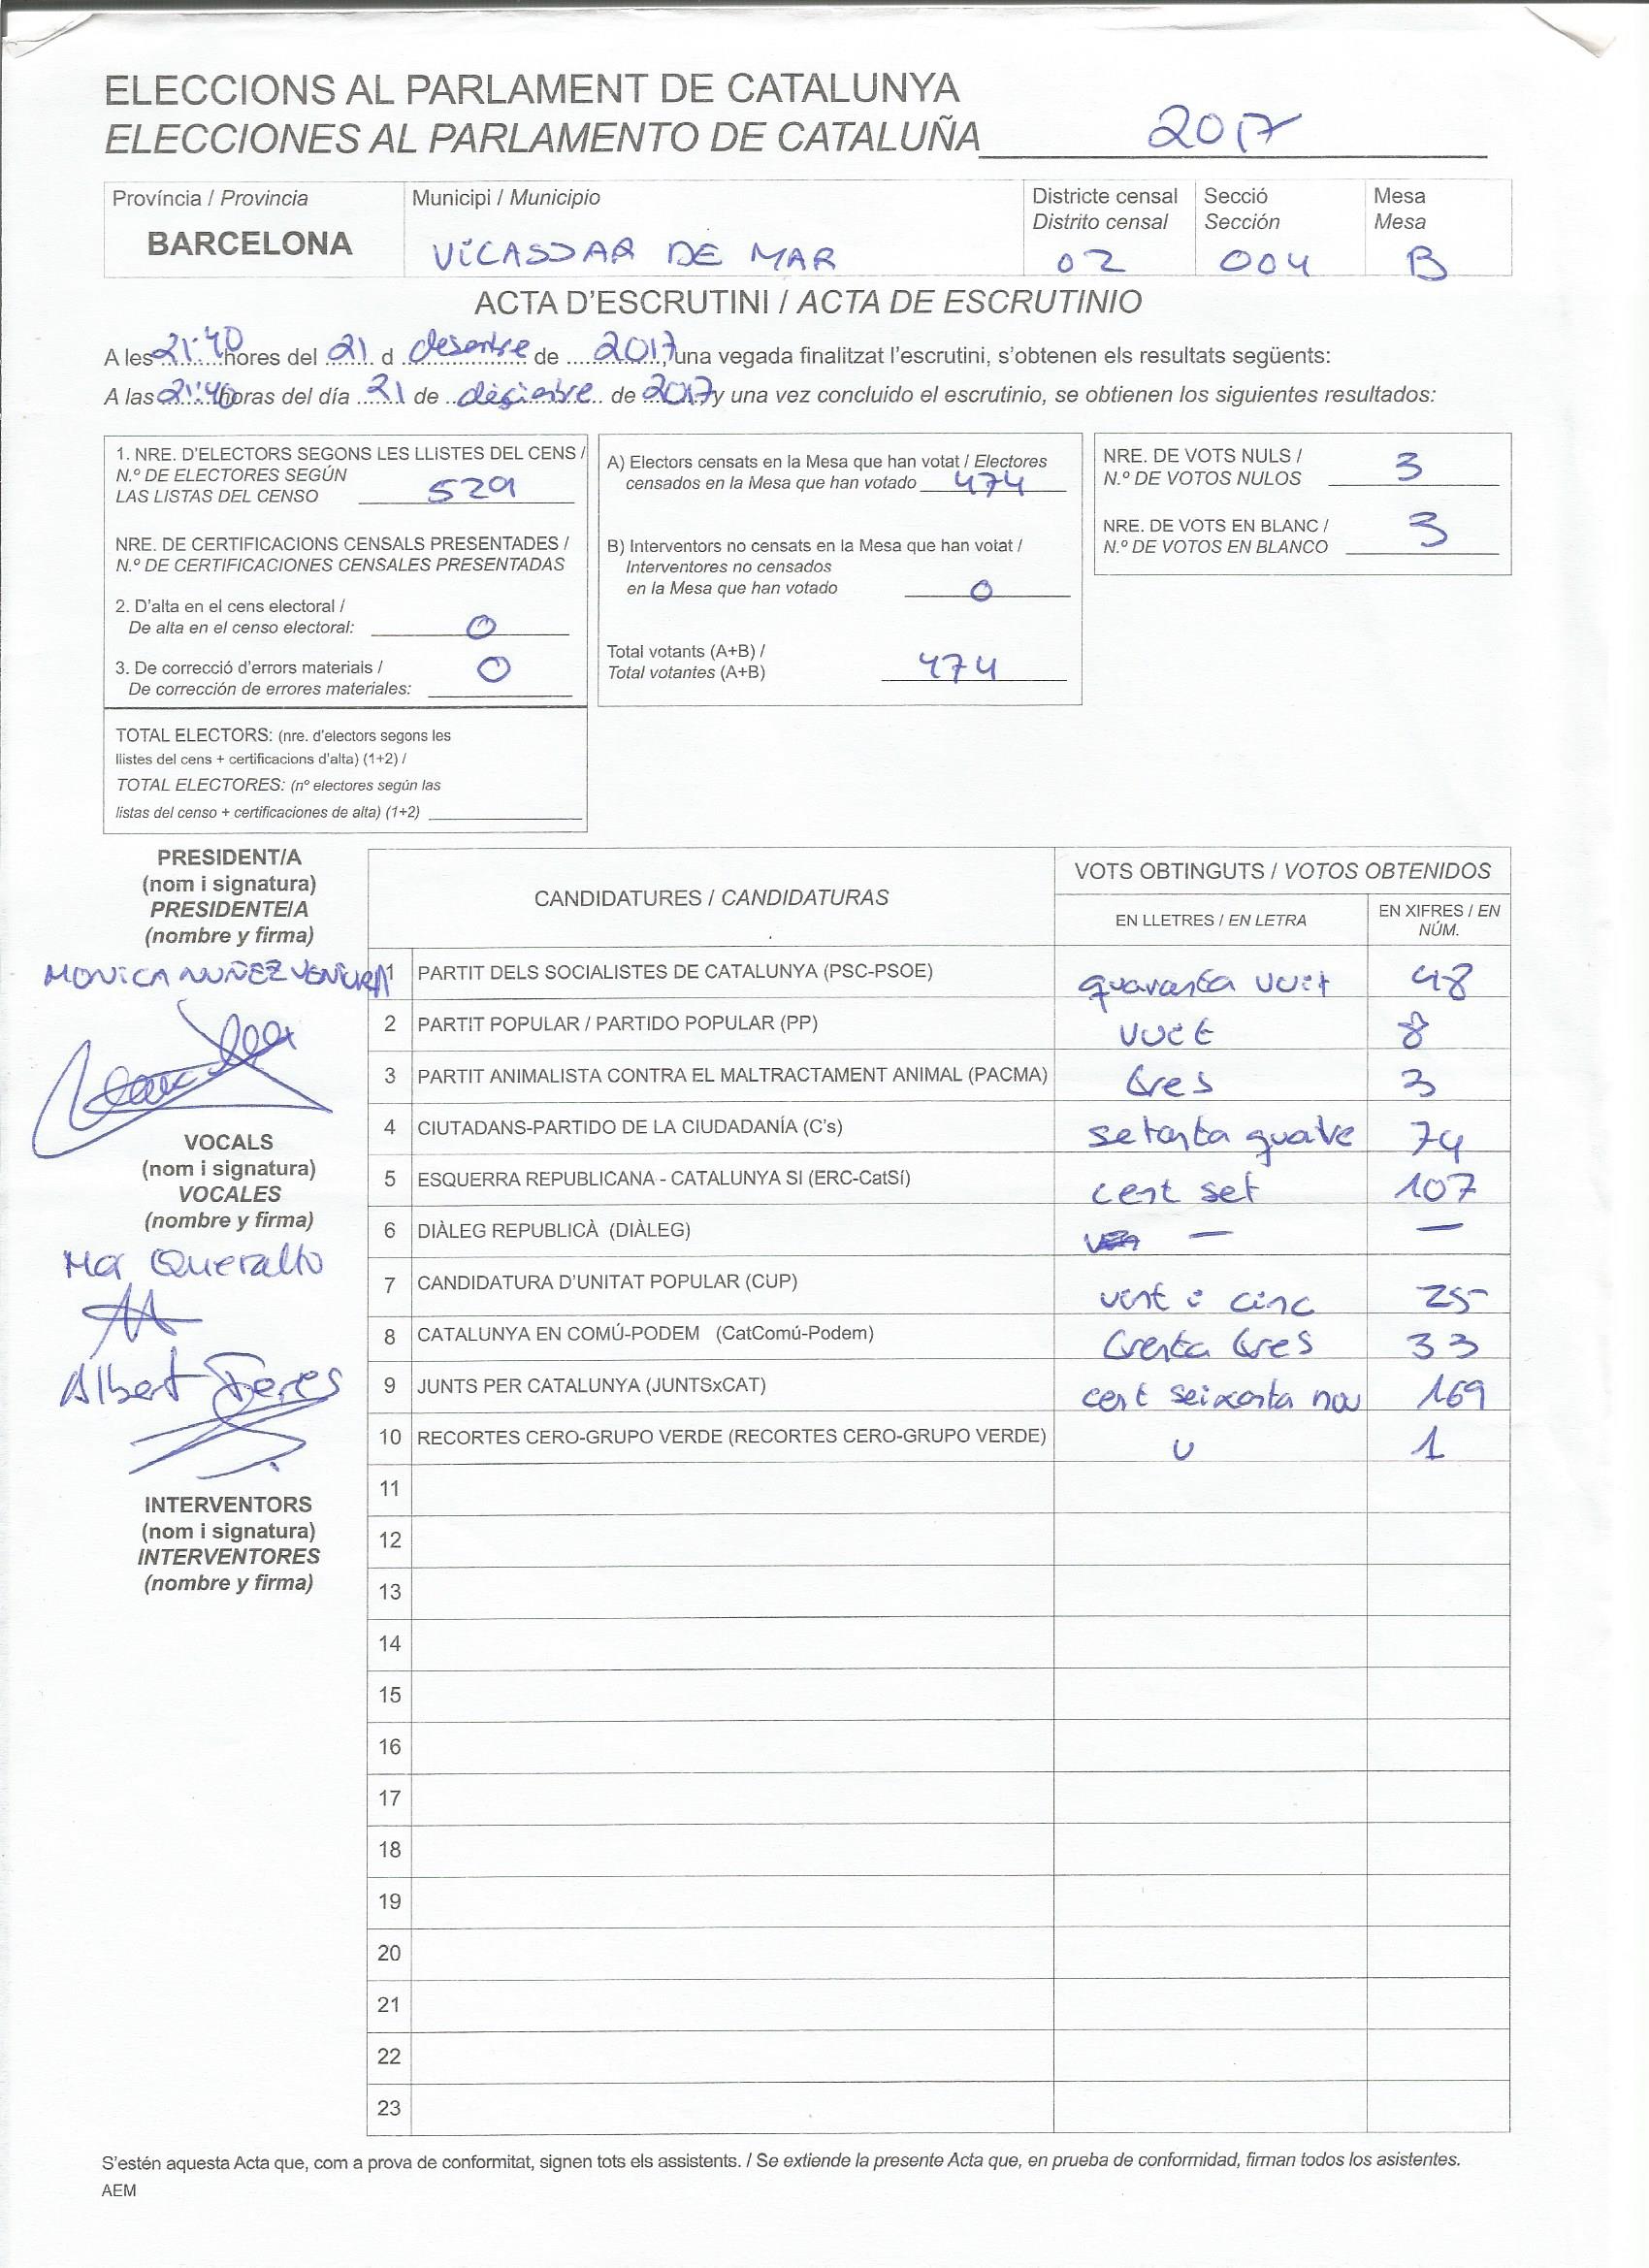 ELECCIONS AL PARLAMENT DE CATALUNYA
ELECCIONES AL PARLAMENTO DE CATALUÑA 2017
Província / Provincia
BARCELONA
Municipi / Municipio
VILASSAR DE MAR
Districte censal
Distrito censal
02
Secció
Sección
004
Mesa
Mesa
B
ACTA D'ESCRUTINI / ACTA DE ESCRUTINIO
A les 21:40 hores del 21 d desembre de 2017, una vegada finalitzat l'escrutini, s'obtenen els resultats següents:
A las 21:40 horas del día 21 de diciembre de 2017 y una vez concluido el escrutinio, se obtienen los siguientes resultados:
1. NRE. D'ELECTORS SEGONS LES LLISTES DEL CENS /
N.º DE ELECTORES SEGÚN
LAS LISTAS DEL CENSO 529
NRE. DE CERTIFICACIONS CENSALS PRESENTADES /
N.º DE CERTIFICACIONES CENSALES PRESENTADAS
2. D'alta en el cens electoral /
De alta en el censo electoral: 0
3. De correcció d'errors materials /
De corrección de errores materiales: 0
TOTAL ELECTORS: (nre. d'electors segons les
llistes del cens + certificacions d'alta) (1+2) /
TOTAL ELECTORES: (nº electores según las
listas del censo + certificaciones de alta) (1+2)
A) Electors censats en la Mesa que han votat / Electores
censados en la Mesa que han votado 474
B) Interventors no censats en la Mesa que han votat /
Interventores no censados
en la Mesa que han votado 0
Total votants (A+B) /
Total votantes (A+B) 474
NRE. DE VOTS NULS /
N.º DE VOTOS NULOS 3
NRE. DE VOTS EN BLANC /
N.º DE VOTOS EN BLANCO 3
PRESIDENT/A
(nom i signatura)
PRESIDENTE/A
(nombre y firma)
MONICA NUÑEZ VENTURA
VOCALS
(nom i signatura)
VOCALES
(nombre y firma)
Mar Queralto
Albert Feres
INTERVENTORS
(nom i signatura)
INTERVENTORES
(nombre y firma)
CANDIDATURES / CANDIDATURAS
VOTS OBTINGUTS / VOTOS OBTENIDOS
EN LLETRES / EN LETRA
EN XIFRES / EN NÚM.
1 PARTIT DELS SOCIALISTES DE CATALUNYA (PSC-PSOE) quaranta vuit 48
2 PARTIT POPULAR / PARTIDO POPULAR (PP) vuit 8
3 PARTIT ANIMALISTA CONTRA EL MALTRACTAMENT ANIMAL (PACMA) tres 3
4 CIUTADANS-PARTIDO DE LA CIUDADANÍA (C's) setanta quatre 74
5 ESQUERRA REPUBLICANA - CATALUNYA SI (ERC-CatSí) cent set 107
6 DIÀLEG REPUBLICÀ (DIÀLEG) — —
7 CANDIDATURA D'UNITAT POPULAR (CUP) vint i cinc 25
8 CATALUNYA EN COMÚ-PODEM (CatComú-Podem) trenta tres 33
9 JUNTS PER CATALUNYA (JUNTSxCAT) cent seixanta nou 169
10 RECORTES CERO-GRUPO VERDE (RECORTES CERO-GRUPO VERDE) u 1
11
12
13
14
15
16
17
18
19
20
21
22
23
S'estén aquesta Acta que, com a prova de conformitat, signen tots els assistents. / Se extiende la presente Acta que, en prueba de conformidad, firman todos los asistentes.
AEM